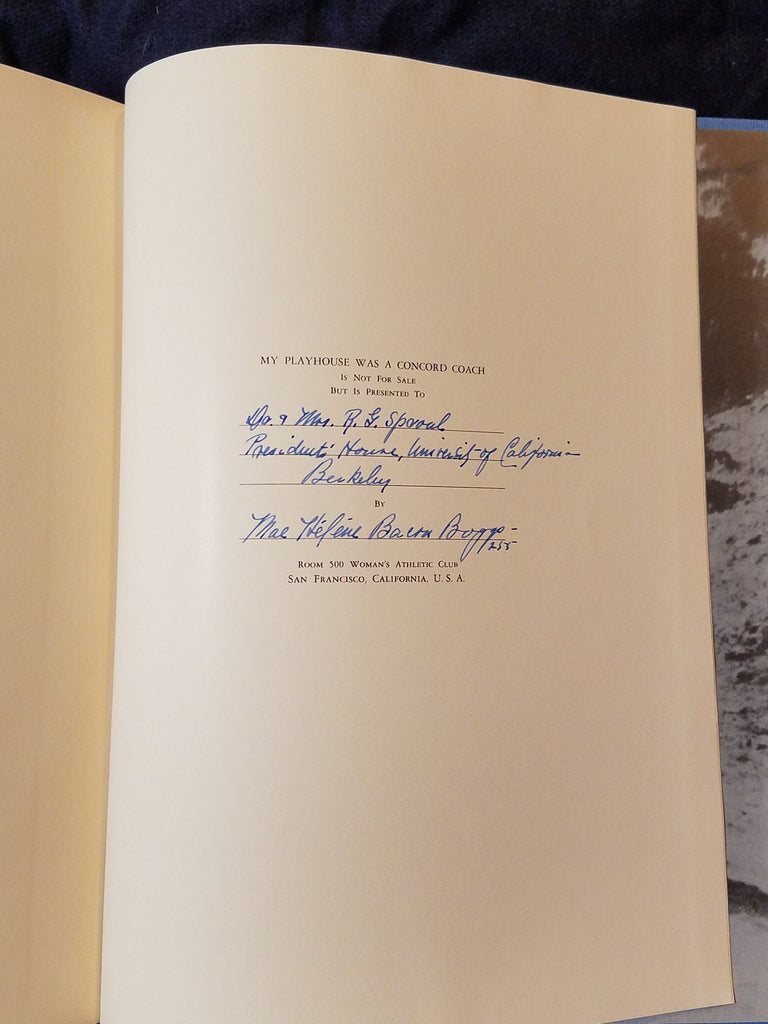 MY PLAYHOUSE WAS A CONCORD COACH
IS NOT FOR SALE
BUT IS PRESENTED TO
Dr. & Mrs. R. G. Sproul
President's House, University of California
Berkeley
BY
Mae Hélène Bacon Boggs -
255
ROOM 500 WOMAN'S ATHLETIC CLUB
SAN FRANCISCO, CALIFORNIA, U. S. A.